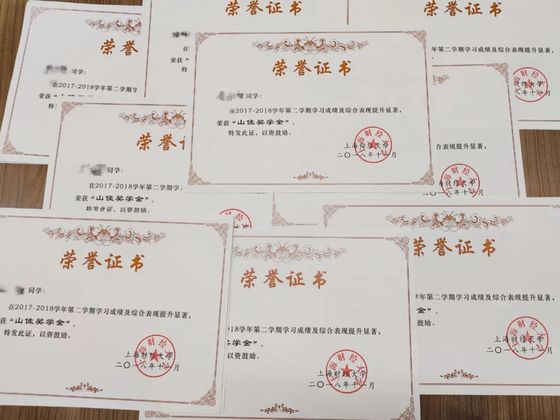 荣誉证书
同学:
在2017-2018学年第二学期学习成绩及综合表现提升显著,
荣获“山佳奖学金”,
特发此证,以资鼓励。
上海财经大学
二〇一八年十一月
荣誉证书
同学:
在2017-2018学年第二学期
荣获“山佳奖学金
特发此证,以资鼓
荣誉证书
同学:
在2017-2018学年第二学期学
荣获“山佳奖学金”,
特发此证,以资鼓励。
期学习成绩及综合表现提升显著,
综合表现提升显著,
荣誉证书
同学:
在2017-2018学年第二学期学习成绩及综合表现提升显著,
荣获“山佳奖学金”,
特发此证,以资鼓励。
上海财经大学
二〇一八年十一月
荣誉证书
018学年第二学期学习成绩及综合表现提升显著,
奖学金”,
以资鼓励。
上海财经大学
二〇一八年十一月
证书
年第二学期学习成绩及综合表现提升显著,
金”,
鼓励。
上海财经大学
二〇一八年十一月